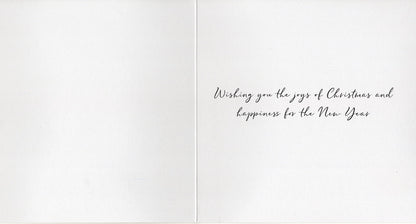 Wishing you the joys of Christmas and
happiness for the New Year